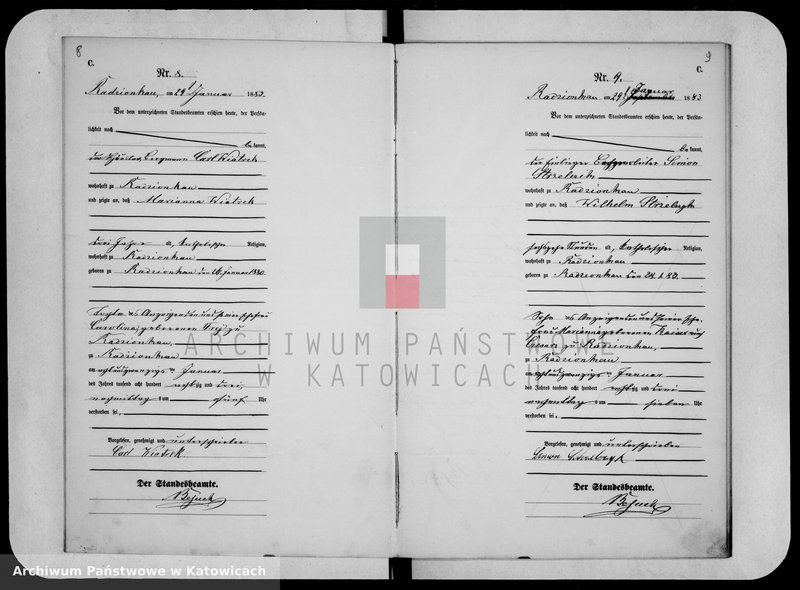 8
C.
Nr. 8.
Radzionkau, am 29t Januar 1883.
Vor dem unterzeichneten Standesbeamten erschien heute, der Persön-
lichkeit nach
bekannt,
der Häusler, Bergmann Carl Kiolsek
wohnhaft zu Radzionkau
und zeigte an, daß Marianna
drei Jahre alt, katholischer Religion,
wohnhaft zu Radzionkau
geboren zu Radzionkau den 26. Januar 1880.
Tochter des Anzeigenden und seiner Ehefrau
Carolina geborenen zu
Radzionkau,
zu Radzionkau
am achtundzwanzigsten Januar
des Jahres tausend acht hundert achtzig und drei
nachmittag um fünf Uhr
verstorben sei.
Vorgelesen, genehmigt und unterschrieben
Carl
Der Standesbeamte.
9
C.
Nr. 9.
Radzionkau am 29t Januar 1883
Vor dem unterzeichneten Standesbeamten erschien heute, der Persön-
lichkeit nach
bekannt,
der Einlieger Simon
wohnhaft zu Radzionkau
und zeigte an, daß Wilhelm
sechszehn Stunden alt, katholischer Religion,
wohnhaft zu Radzionkau
geboren zu Radzionkau den 28. 1. 83.
Sohn des Anzeigenden und seiner Ehe-
frau Marianna geborenen
zu Radzionkau,
zu Radzionkau
am achtundzwanzigsten Januar
des Jahres tausend acht hundert achtzig und drei
nachmittag um sieben Uhr
verstorben sei.
Vorgelesen, genehmigt und unterschrieben
Simon
Der Standesbeamte.
ARCHIWUM PAŃSTWOWE
W KATOWICACH
Archiwum Państwowe w Katowicach